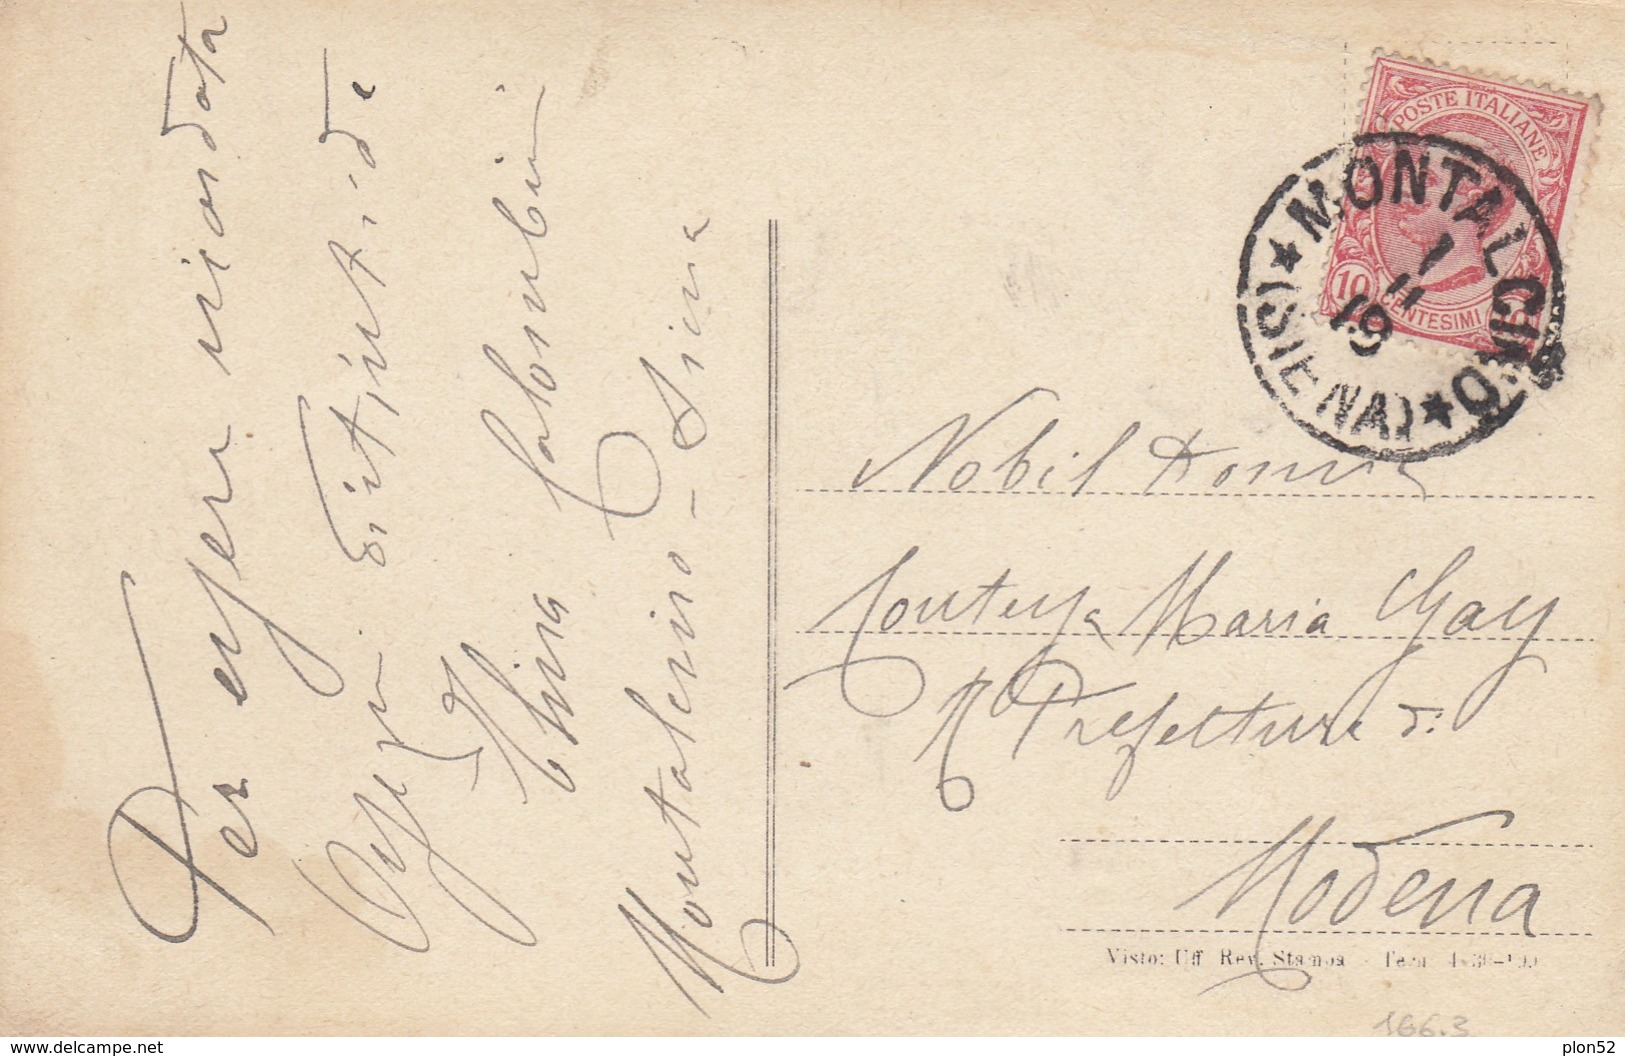 Per esser ricordata
Chiva Colombini
Montalcino - Siena
POSTE ITALIANE
10 CENTESIMI 10
MONTALCINO
(SIENA)
1
11
19
Nobil Donna
Contessa Maria Gay
R Prefettura di
Modena
Visto: Uff Rev. Stampa
166.3
www.delcampe.net
plon52